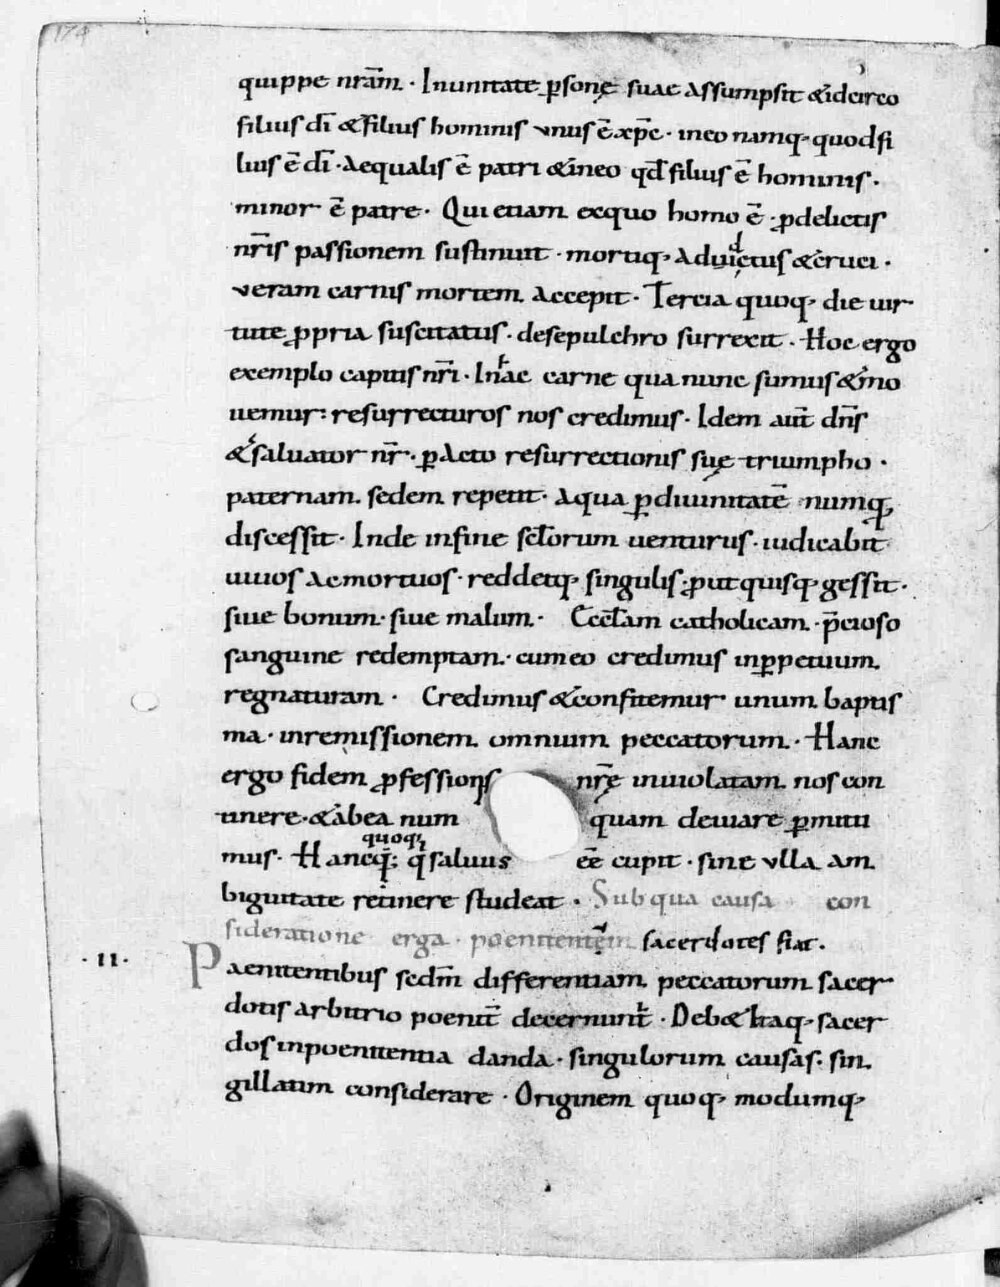 174
quippe nr̄am · Inunitate ꝑsonę suae Assumpsit & idcirco
filius dī & filius hominis vnus ē xp̄c · ineo namq; quodfi
lius ē dī · Aequalis ē patri & ineo qđ filius ē hominis ·
minor ē patre · Qui etiam exquo homo ē · ꝓdelictis
nr̄is passionem sustinuit · mortiq; Adductus & cruci ·
veram carnis mortem Accepit · Tercia quoq; die uir
tute ꝓpria suscitatus · desepulchro surrexit · Hoc ergo
exemplo capitis nr̄i · In hac carne qua nunc sumus & mo
uemur: resurrecturos nos credimus · Idem aut̄ dn̄s
& saluator nr̄ · ꝑActo resurrectionis suę triumpho ·
paternam sedem repetit · Aqua ꝑdiuinitatē numq;
discessit · Inde infine scłorum uenturus · iudicabit
uiuos Acmortuos · reddetq; singulis · ꝓut quisq; gessit ·
siue bonum · siue malum · Eccłam catholicam · p̄cioso
sanguine redemptam · cumeo credimus inꝑpetuum
regnaturam · Credimus & confitemur unum baptis
ma · inremissionem omnium peccatorum · Hanc
ergo fidem ꝓfessionis nr̄ę inuiolatam nos con
tinere · & abea num quam deuiare ꝑmitti
mus · Hanc quoq; q̄ saluus eē cupit · sine vlla Am
biguitate retinere studeat · Sub qua causa con
sideratione erga poenitentem sacerdotes fiat.
· II · Paenitentibus secdm̄ differentiam peccatorum sacer
dotis arbitrio poenit̄ decernunt̄ · Deb& itaq; sacer
dos inpoenitentia danda · singulorum causas · sin
gillatim considerare · Originem quoq; modumq;